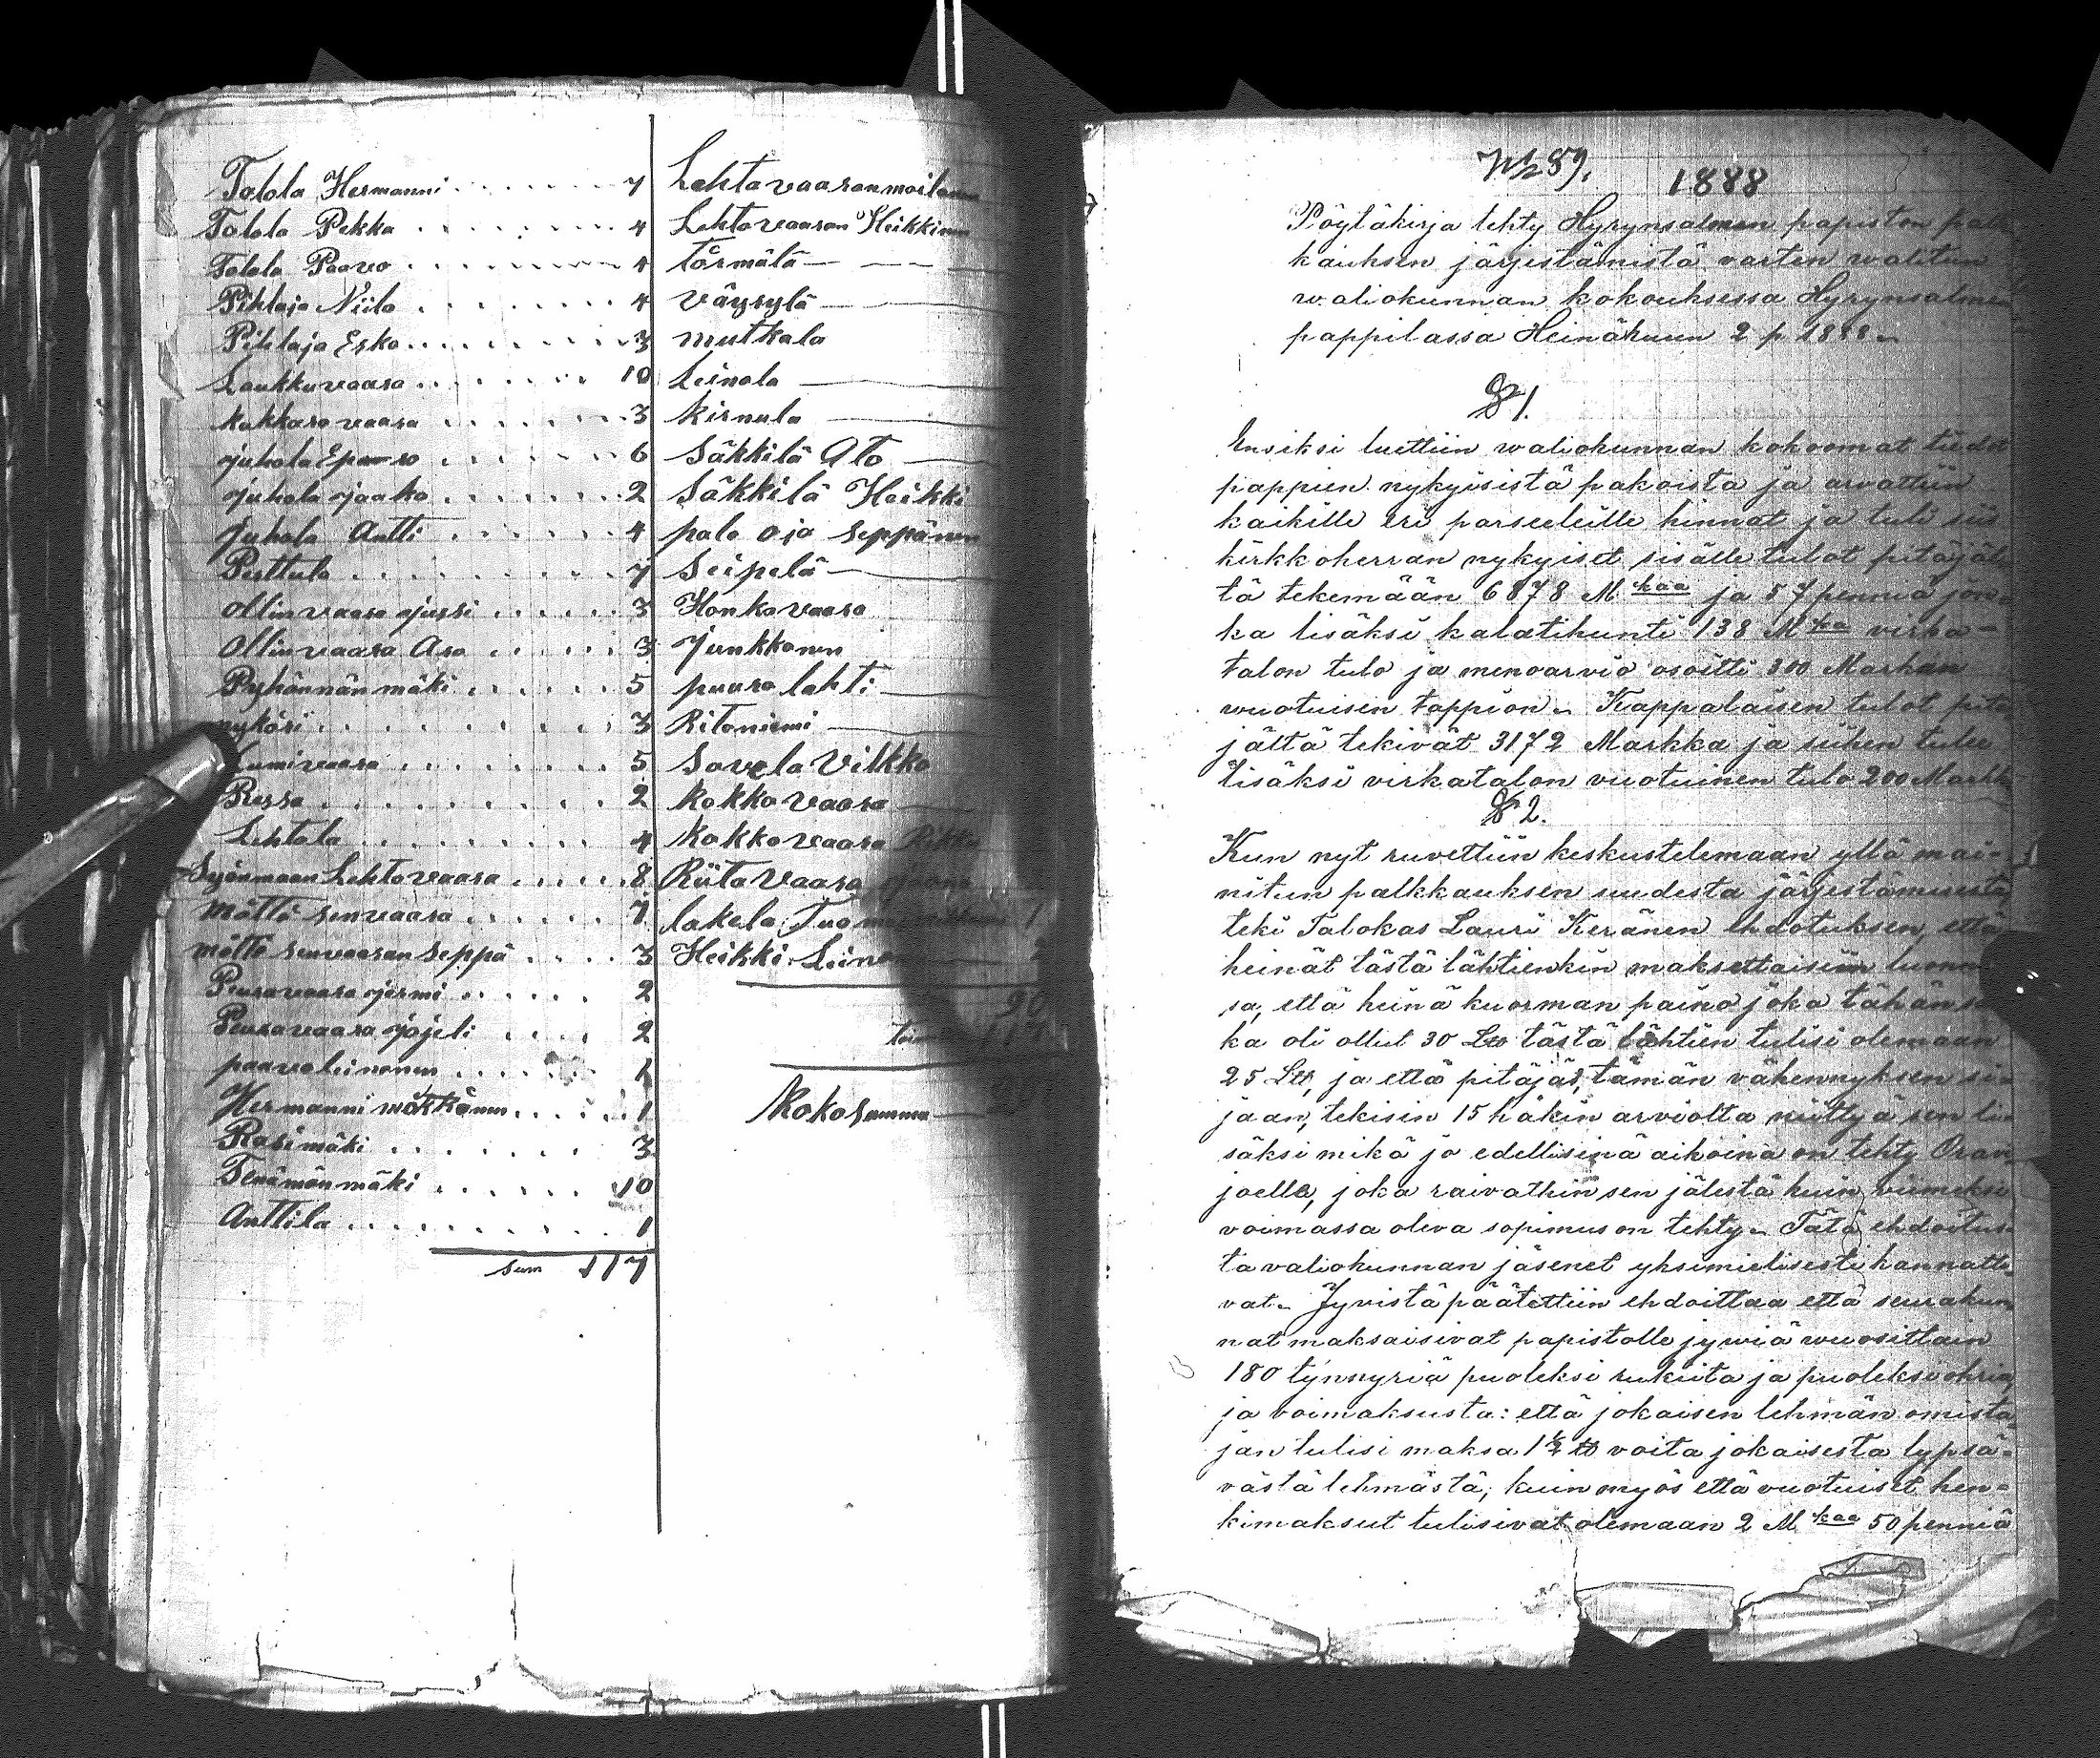 Talola Hermanni . . . . . . . 7
Talola Pekka . . . . . . . . 4
Talola Paavo . . . . . . . . 4
Pihlaja Niilo . . . . . . . . 4
Pihlaja Esko . . . . . . . . 3
Laukkuvaara . . . . . . . 10
Kokkarovaara . . . . . . . 3
Juhola . . . . . . 6
Juhola Jaako . . . . . . . 2
Juhola Antti . . . . . . 4
Perttula . . . . . . . . . 7
Ollinvaara Jussi . . . . . 3
Ollinvaara Asa . . . . . 3
Pyhännän mäki . . . . . . 5
nykäri . . . . . . . . . 3
Lumivaara . . . . . . . . 5
Ressa . . . . . . . . . . 2
Lehtola . . . . . . . . . 4
Syänmaan Lehtovaara . . . . . 8
Möttö senvaara . . . . . . 7
möttö senvaaran Seppä . . . . 3
Peuravaara Jermi . . . . . . 2
Peuravaara . . . . 2
paavo leinonen . . . . . 1
Hermanni mökkönen . . . . . 1
Rasimäki . . . . . . . 3
Teerimäenmäki . . . . . . 10
Anttila . . . . . . . . . 1
sum 117
Lehtovaaran moilanen
Lehtovaaran Heikkinen
törmälä
väyrylä
mutkala
Leinola
kirnula
Säkkilä Ato
Säkkilä Heikki
palo oja Seppänen
Seipelä
Honkavaara
Junkkonen
puura lahti
Ritoniemi
Savela Vilkko
kokkovaara
kokkovaara Pekka
Riitavaara
lakela Tuo
Heikki Leino
90
117
Koko summa
№ 89. 1888
Pöytäkirja tehty Hyrynsalmen papiston pal
kauksen järjestämistä varten walitun
waliokunnan kokouksessa Hyrynsalmen
pappilassa Heinäkuun 2 p. 1888.
§ 1.
Ensiksi luettiin waliokunnan kokoomat tiedot
pappien nykyisistä pakoista ja arvattiin
kaikille eri parseeleille hinnat ja tuli siis
kirkkoherran nykyiset sisälle tulot pitäjäl
tä tekemään 6878 Mkaa ja 57 penniä jon
ka lisäksi kalatihunti 138 Mkaa virka-
talon tulo ja menoarvio osoitti 300 Markan
vuotuisen tappion. Kappalaisen tulot pitä
jältä tekivät 3172 Markka ja siihen tulee
lisäksi virkatalon vuotuinen tulo 200 Markk
§ 2.
Kun nyt ruvettiin keskustelemaan yllä mai-
nitun palkkauksen uudesta järjestämisestä,
teki Talokas Lauri Keränen ehdotuksen, että
heinät tästä lähtienkin maksettaisiin luonnos
sa, että heinä kuorman paino joka tähän as
ka oli ollut 30 L℔ tästä lähtien tulisi olemaan
25 L℔, ja että pitäjäs, tämän vähennyksen si-
jaan, tekisin 15 häkin arviolta niittyä sen li-
säksi mikä jo edellisinä aikoina on tehty Oravi
joella, joka raivathin sen jälestä kuin viimeksi
voimassa oleva sopimus on tehty. Tätä ehdoitus
ta valiokunnan jäsenet yksimielisesti kannatti-
vat. Jyvistä päätettiin ehdoittaa että seurakun
nat maksaisivat papistolle jyviä vuosittain
180 tynnyriä puoleksi rukiita ja puoleksi ohria,
ja voimaksusta: että jokaisen lehmän omista
jan tulisi maksa 1½ ℔ voita jokaisesta lypsä-
västä lehmästä, kuin myös että vuotuiset hen-
kimaksut tulisivat olemaan 2 Mkaa 50 penniä